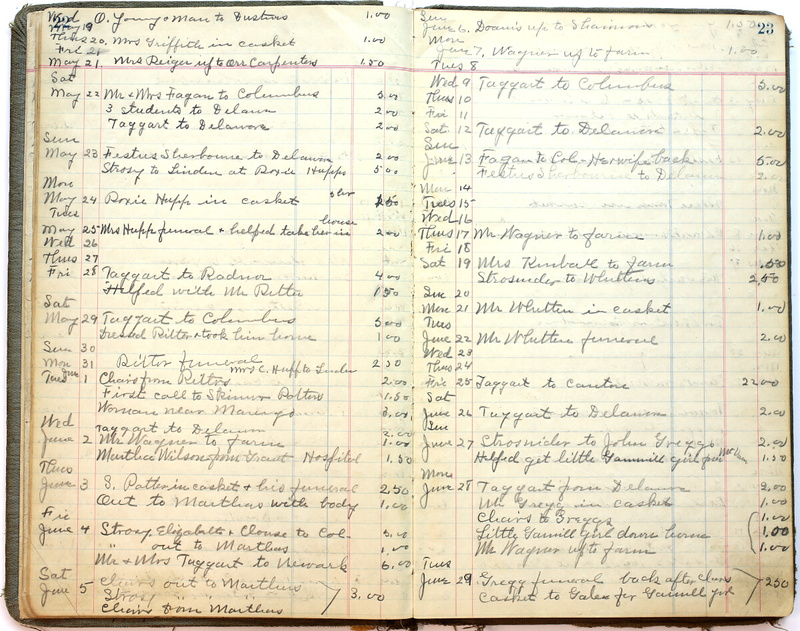 Wed May 19 O. Young & Man to Dustins 1.00
Thurs 20, Mrs Griffith in casket 1.00
Fri 21
May 21, Mrs Reiger up to Orr Carpenters 1.50
Sat
May 22 Mr & Mrs Fagan to Columbus 5.00
3 students to Delawr 2.00
Taggart to Delaware 2.00
Sun
May 23 Festus Sherbourne to Delawr 2.00
Strosy to Linden at Roxie Hupps 5.00
Mon
May 24 Roxie Hupp in casket
Tues
May 25 Mrs Hupp funeral & helped take her in house 2.00
Wed 26
Thus 27
Fri 28 Taggart to Radnor 4.00
Helped with Mr Ritter 1.50
Sat
May 29 Taggart to Columbus 5.00
Dressed Ritter & took him home 1.00
Sun 30
Mon 31 Ritter funeral Mrs C. Hupp to Linden 2.50
Tues June 1 Chairs from Ritters 2.00
First call to Skinner Potters 1.50
Woman near Marengo 3.00
Wed Taggart to Delawr 2.00
June 2 Mr Wagner to farm 1.00
Martha Wilson from Grant Hospital 1.50
Thus
June 3 S. Potter in casket & his funeral 2.50
Out to Marthas with body 1.00
Fri
June 4 Strosy Elizabeth & Clouse to Col- 5.00
" out to Marthas 1.00
Mr & Mrs Taggart to Newark 6.00
Sat
June 5 Chairs out to Marthas
Strosy " " " 3.00
Chairs from Marthas
23
Sun
June 6. Doan's up to 1.50
Mon
June 7, Wagner up to farm 1.00
Tues 8
Wed 9 Taggart to Columbus 5.00
Thus 10
Fri 11
Sat 12 Taggart to Delawr 2.00
Sun
June 13 Fagan to Col- Her wife back 5.00
Festus Sherbourne to Delawr 2.0
Mon 14
Tues 15
Wed 16
Thus 17 Mr Wagner to farm 1.00
Fri 18
Sat 19 Mrs Kimball to farm .50
Strosnider to Whitters 2.50
Sun 20
Mon 21 Mr Whitter in casket 1.00
Tues
June 22 Mr Whitter funeral 2.00
Wed 23
Thus 24
Fri 25 Taggart to Canton 22.00
Sat
June 26 Taggart to Delawr 2.00
Sun
June 27 Strosnider to John Greggs 2.00
Helped get little Gammill girl from 1.50
Mon
June 28 Taggart from Delawr 2.00
Mr Gregg in casket 1.00
Chairs to Greggs 1.00
Little Gamill Girl down home 1.00
Mr Wagner up to farm 1.00
Tues
June 29 Gregg funeral back after chairs 2.50
casket to Galena for Gammill girl